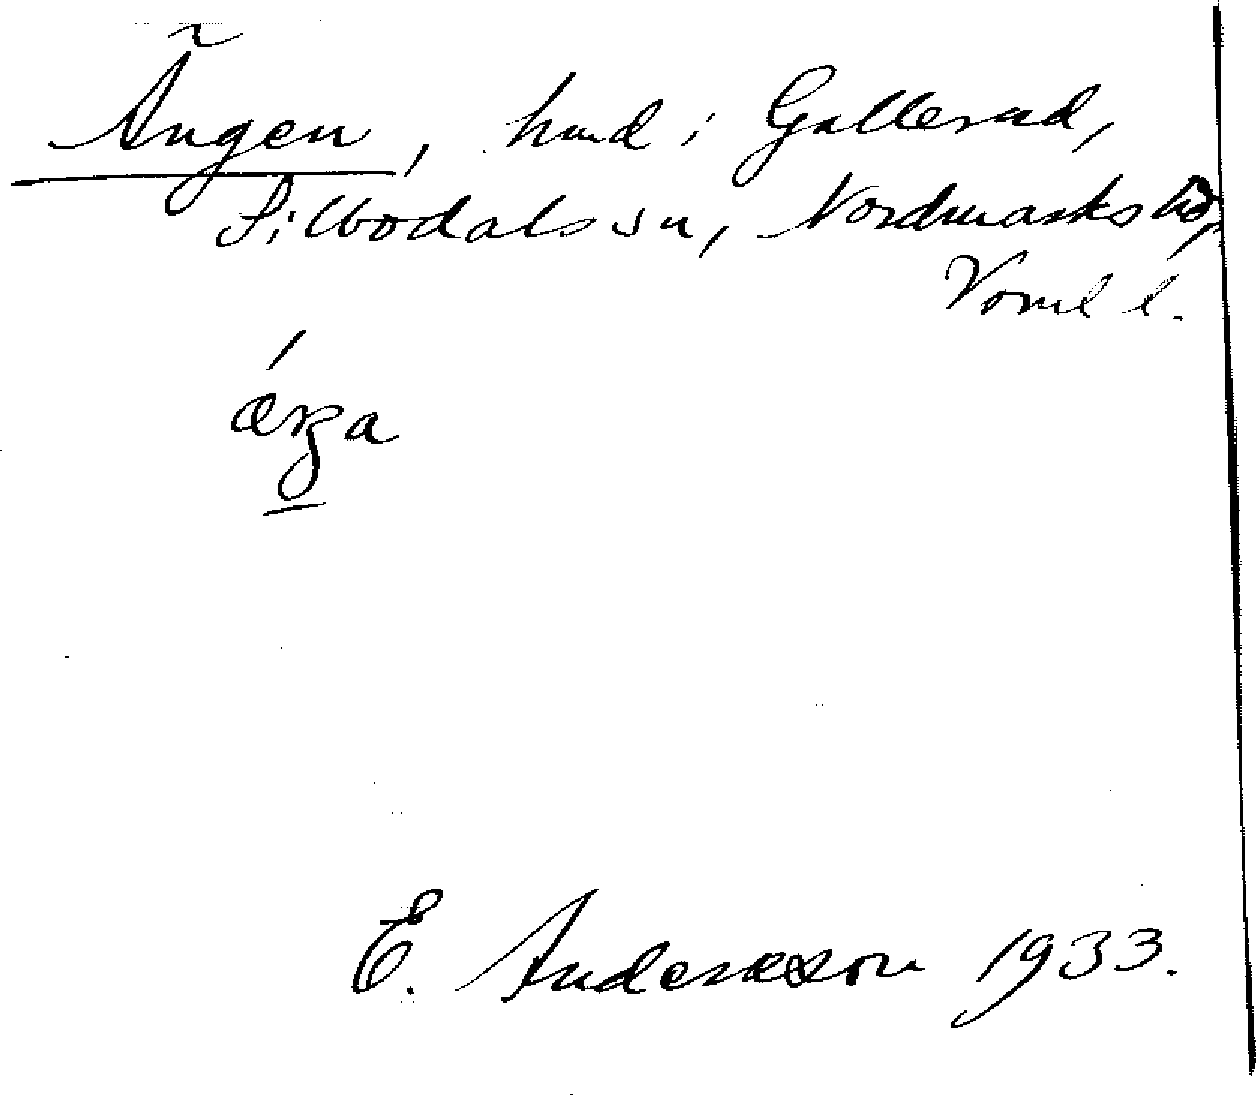 Ängen, hmd i Gallerud,
Silbodals sn, Nordmarks hd,
Värml l.
E. Andersson 1933.